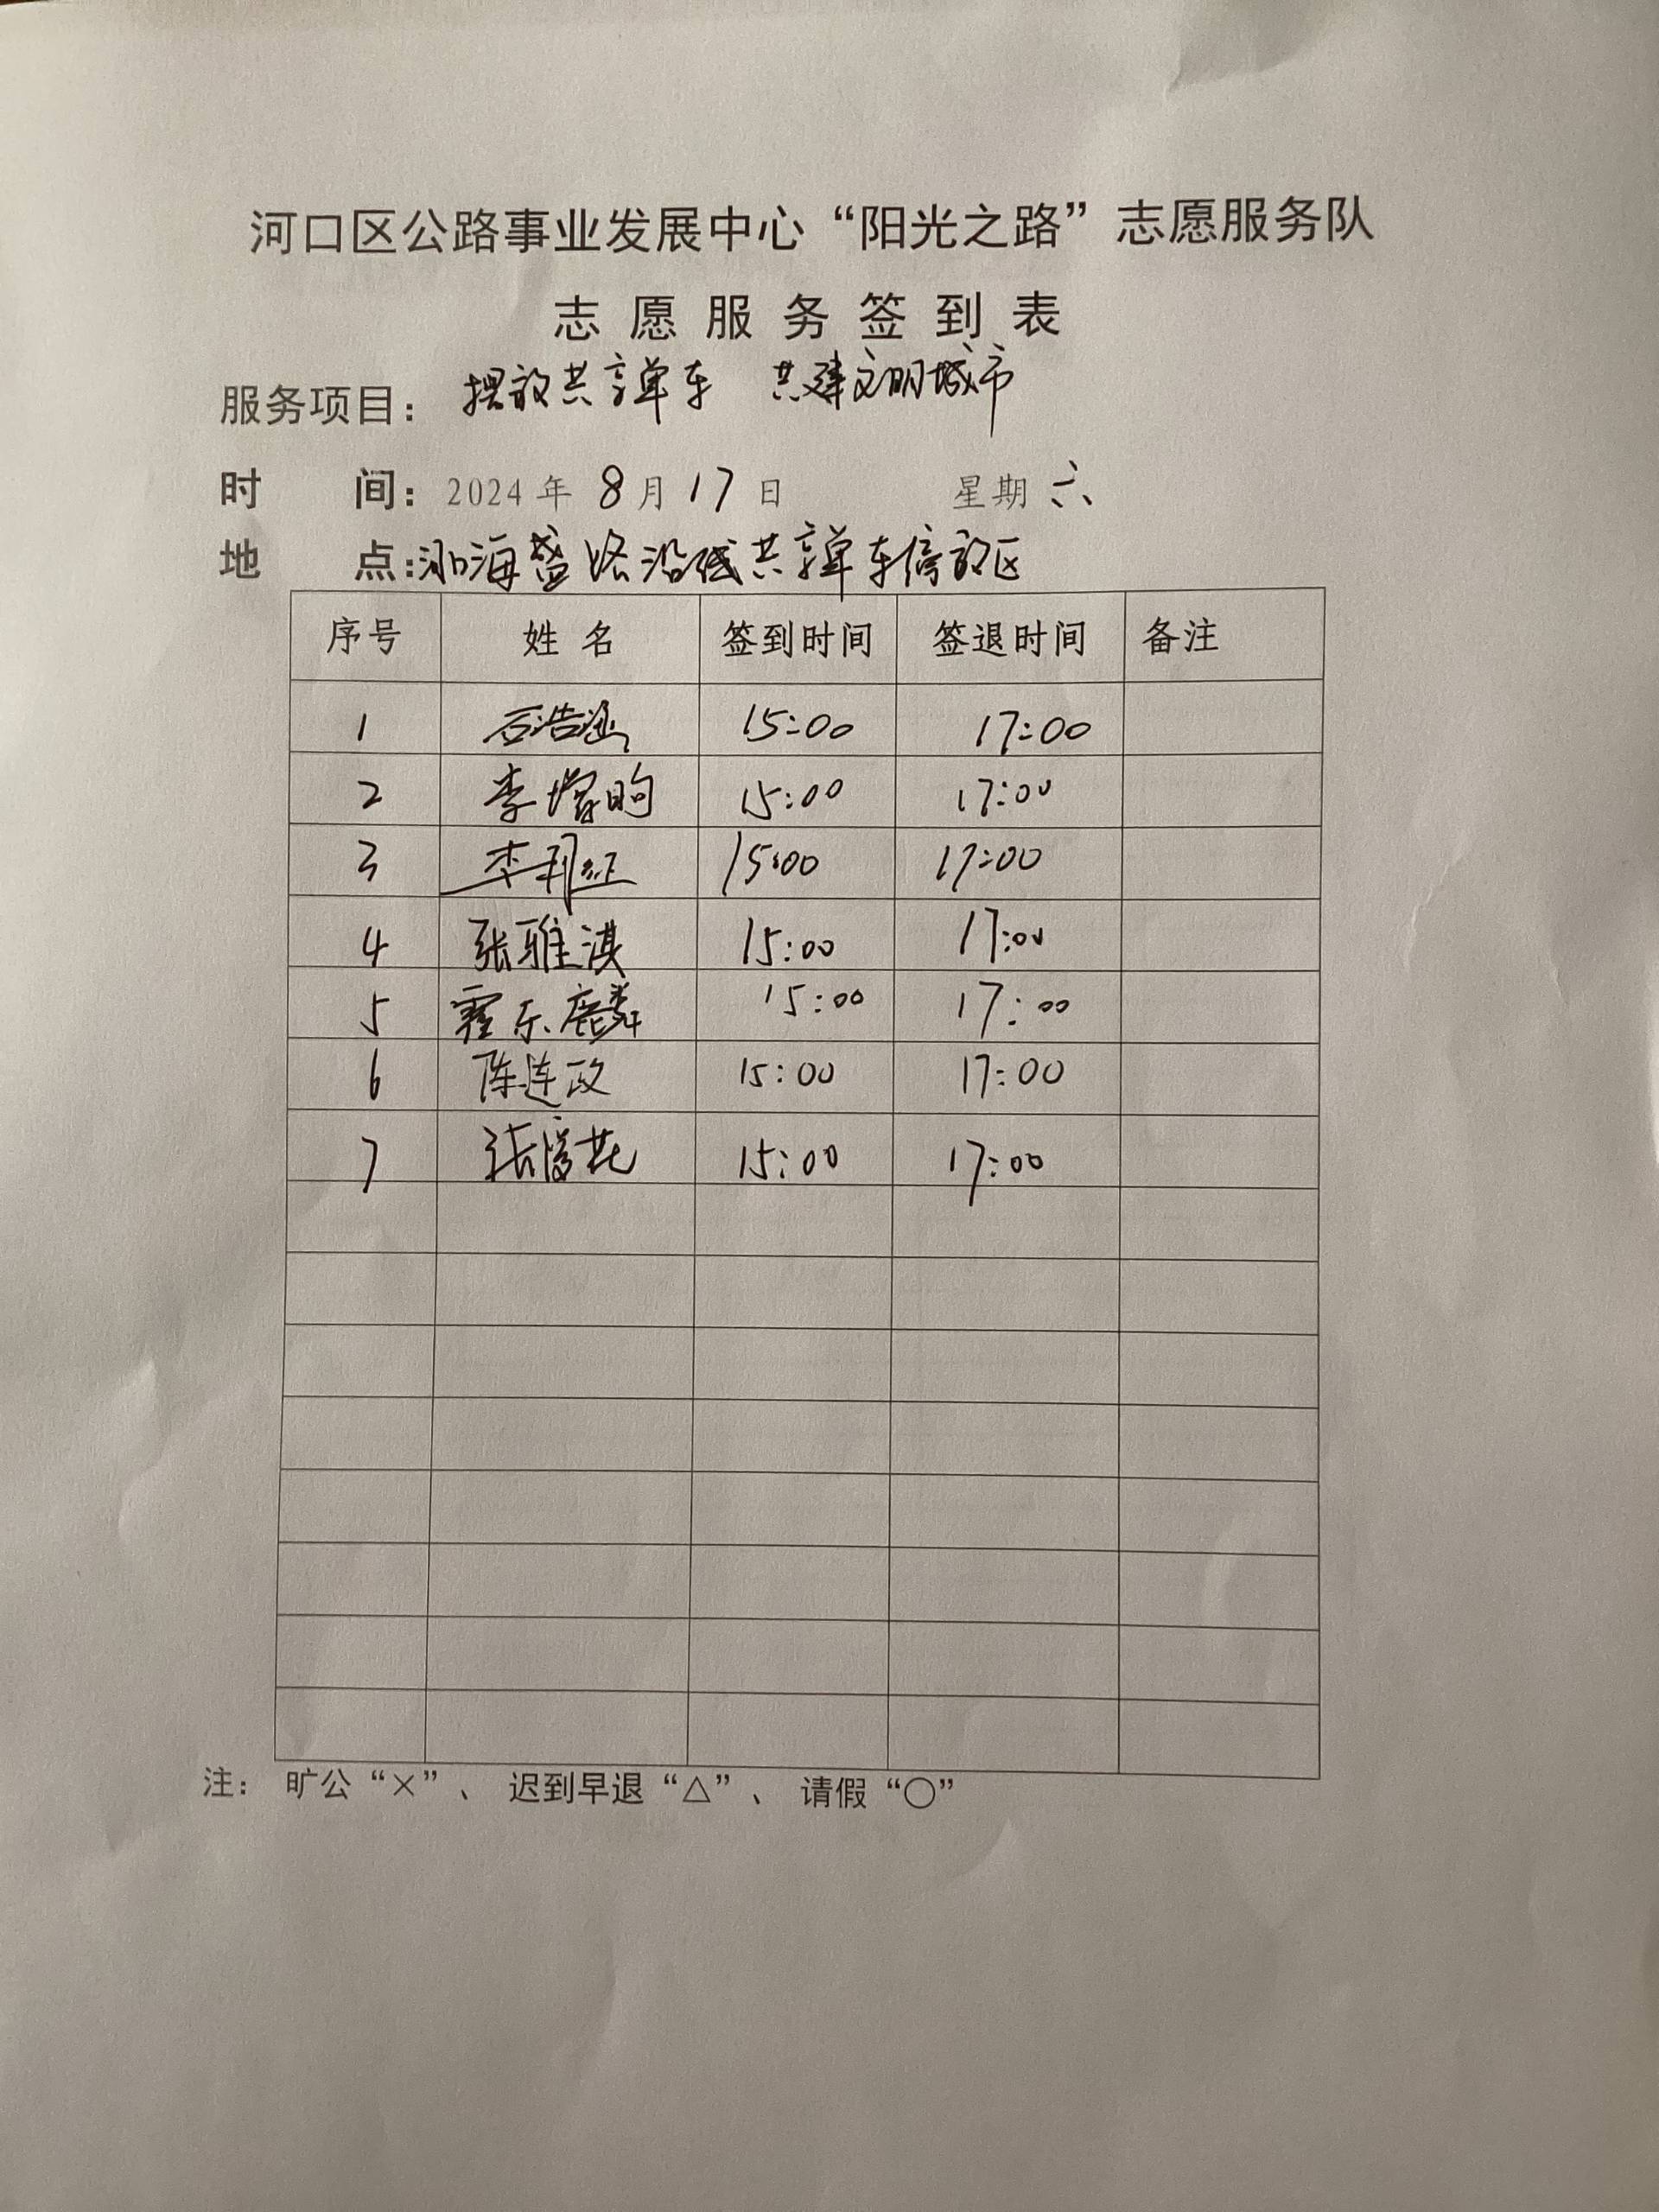 河口区公路事业发展中心“阳光之路”志愿服务队
志愿服务签到表
服务项目：摆放共享单车 共建文明城市
时 间：2024年8月17日 星期六
地 点：海盛路沿线共享单车停放区
序号 姓名 签到时间 签退时间 备注
1 石浩涵 15:00 17:00
2 李增昀 15:00 17:00
3 李 15:00 17:00
4 张雅淇 15:00 17:00
5 霍东麟 15:00 17:00
6 陈连政 15:00 17:00
7 张富花 15:00 17:00
注： 旷公“×”、 迟到早退“△”、 请假“○”